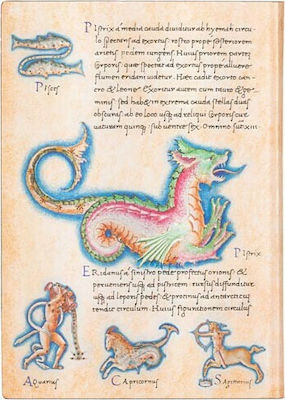 PIstrix a media cauda diuiditur ab hyemali circu
lo spectans ad exortus: rostro prope posteriorem
arietis pedem iungens. Huius priorem partem
corporis: quae spectat ad exortus prope alluere
flumen eridani uidetur. Haec cadit exorto can-
cro & Leone: Exoritur autem cum tauro & ge-
minis: sed habet in extrema cauda stellas duas
obscuras: ab eo loco usq; ad reliqui corporis cur
uaturam quinq; sub uentre sex. Omnino sunt xiii.
PIsces
PIstrix
ERidanus a sinistro pede profectus orionis: &
perueniens usq; ad pistricem: rursus diffunditur
usq; ad leporis pedes: & protinus ad antarcticum
tendit circulum. Huius figurationem circulus
AQuarius
CApricornus
SAgittarius